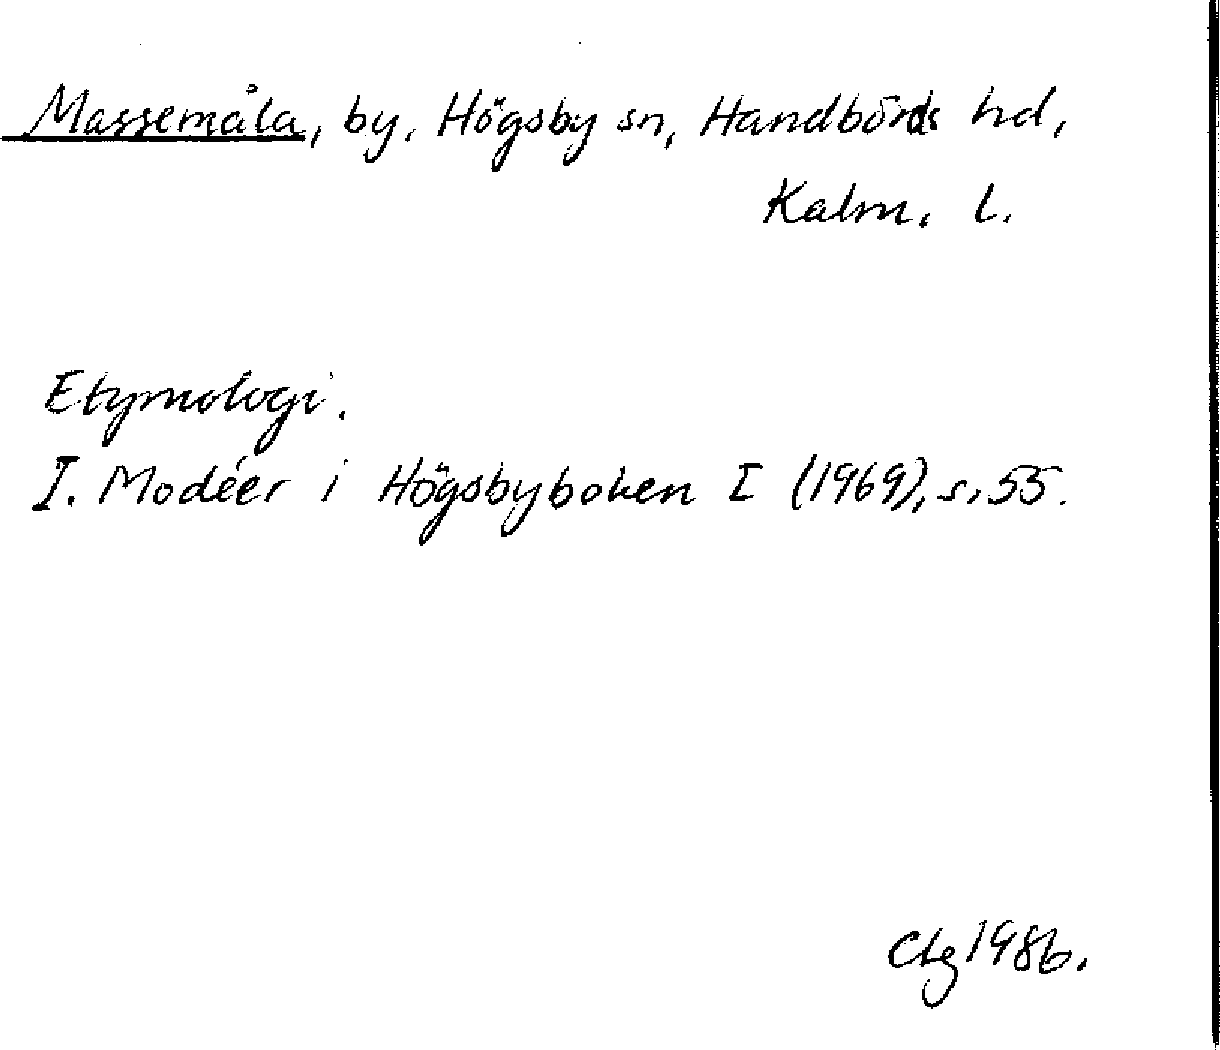 Massemåla, by, Högsby sn, Handbörds hd,
Kalm. l.
Etymologi.
I. Modéer i Högsbyboken I (1969), s. 55.
Cbg 1986.